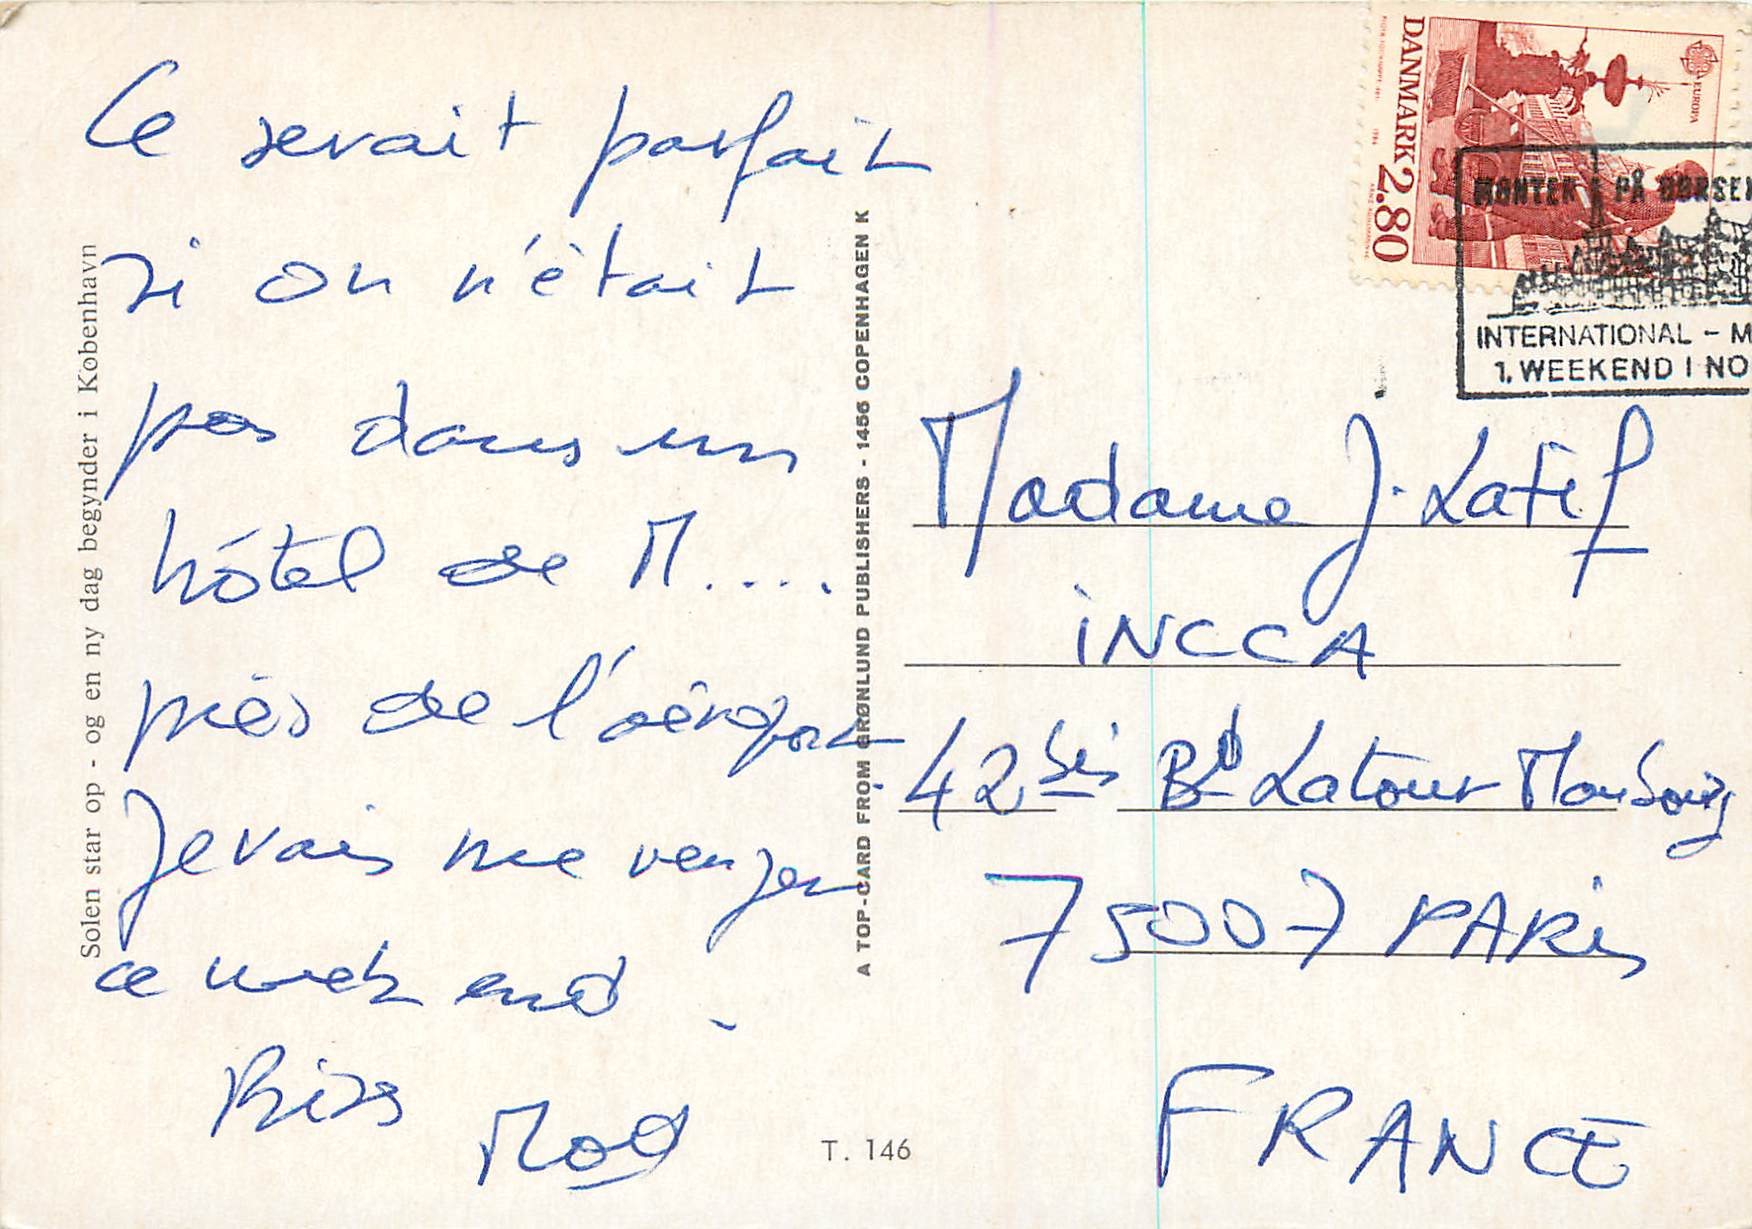 Ce serait parfait
si on n'était
pas dans un
hôtel de M....
près de l'aéroport.
Je vais me venger
ce week end.
Kiss
Mod
Solen star op - og en ny dag begynder i København
A TOP-CARD FROM GRØNLUND PUBLISHERS - 1456 COPENHAGEN K
T. 146
DANMARK 2.80
EUROPA
MØNTER PÅ BØRSEN
INTERNATIONAL - M
1. WEEKEND I NO
Madame J. Latif
INCCA
42 bis Bd Latour Maubourg
75007 PARis
FRANCE